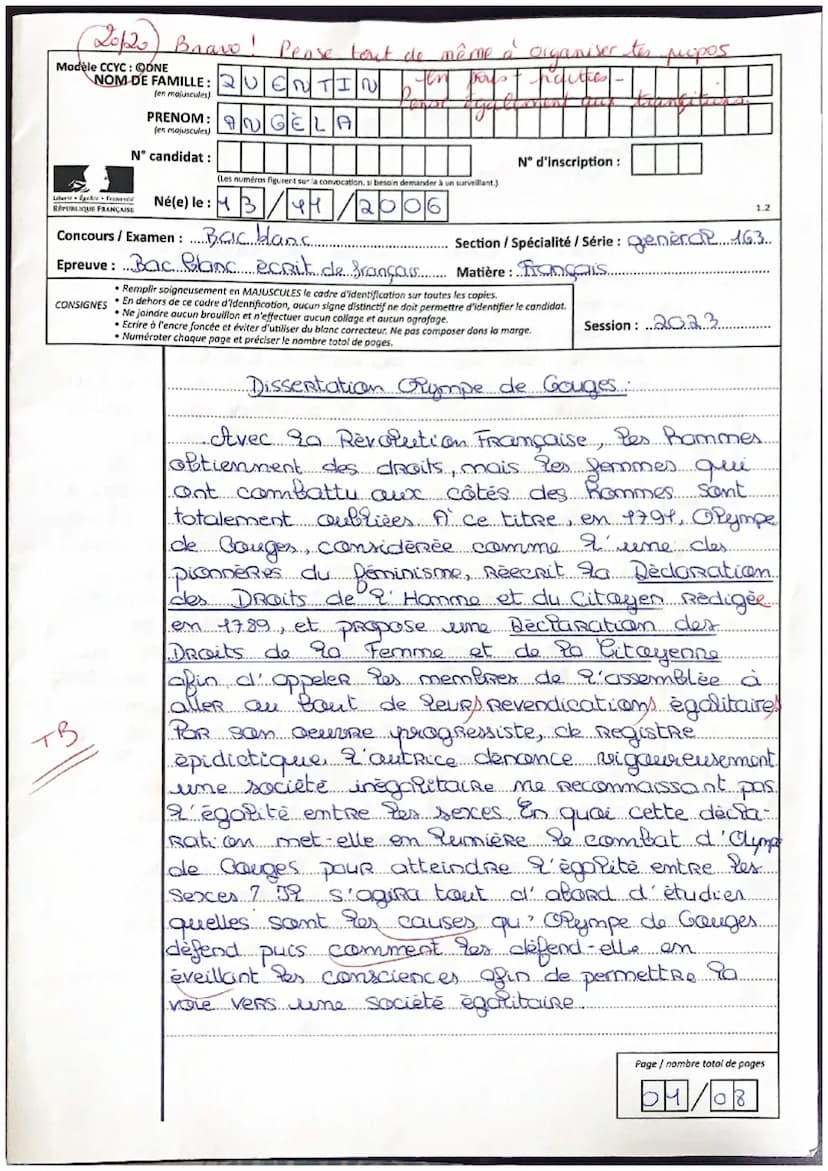 20/20 Bravo ! Pense tout de même à organiser tes propos
en
Pense également aux transitions.
Modèle CCYC : ©DNE
NOM DE FAMILLE : QUENTIN
(en majuscules)
PRENOM : ANGÈLA
(en majuscules)
N° candidat :
N° d'inscription :
(Les numéros figurent sur la convocation, si besoin demander à un surveillant.)
Liberté • Égalité • Fraternité
RÉPUBLIQUE FRANÇAISE
Né(e) le : 13/11/2006
1.2
Concours / Examen : Bac blanc
Section / Spécialité / Série : général 163
Epreuve : Bac blanc écrit de français
Matière : Français
CONSIGNES
• Remplir soigneusement en MAJUSCULES le cadre d'identification sur toutes les copies.
• En dehors de ce cadre d'identification, aucun signe distinctif ne doit permettre d'identifier le candidat.
• Ne joindre aucun brouillon et n'effectuer aucun collage et aucun agrafage.
• Ecrire à l'encre foncée et éviter d'utiliser du blanc correcteur. Ne pas composer dans la marge.
• Numéroter chaque page et préciser le nombre total de pages.
Session : 2023
Dissertation Olympe de Gouges :
Avec la Révolution Française, les hommes
obtiennent des droits, mais les femmes qui
ont combattu aux côtés des hommes sont
totalement oubliées. A ce titre, en 1791, Olympe
de Gouges, considérée comme l'une des
pionnères du féminisme, réecrit la Déclaration
des Droits de l'Homme et du Citoyen rédigée
en 1789, et propose une Déclaration des
Droits de la Femme et de la Citoyenne
afin d'appeler les membres de l'assemblée à
aller au bout de leurs revendications égalitaires
Par son oeuvre progressiste, de registre
épidictique, l'autrice dénonce vigoureusement
une société inégalitaire ne reconnaissant pas
l'égalité entre les sexces. En quoi cette décla-
ration met-elle en lumière le combat d'Olympe
de Gouges pour atteindre l'égalité entre les
sexces ? Il s'agira tout d'abord d'étudier
quelles sont les causes qu'Olympe de Gouges
défend puis comment les défend-elle en
éveillant les consciences afin de permettre la
voie vers une société égalitaire.
TB
Page / nombre total de pages
01/08